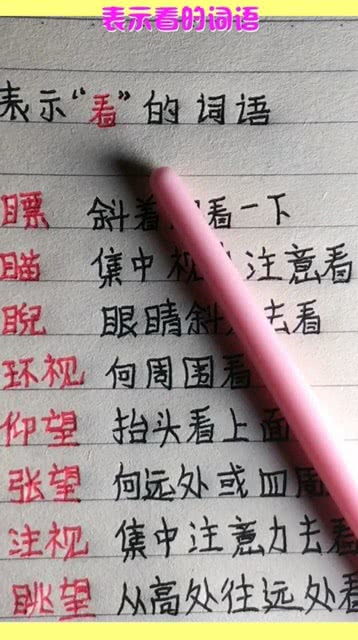 表示看的词语
表示“看”的词语
瞟 斜着看一下
瞄 集中视注意看
睨 眼睛斜去看
环视 何周围看
仰望 抬头看上面
张望 何远处或四周
注视 集中注意力去看
眺望 从高处往远处看